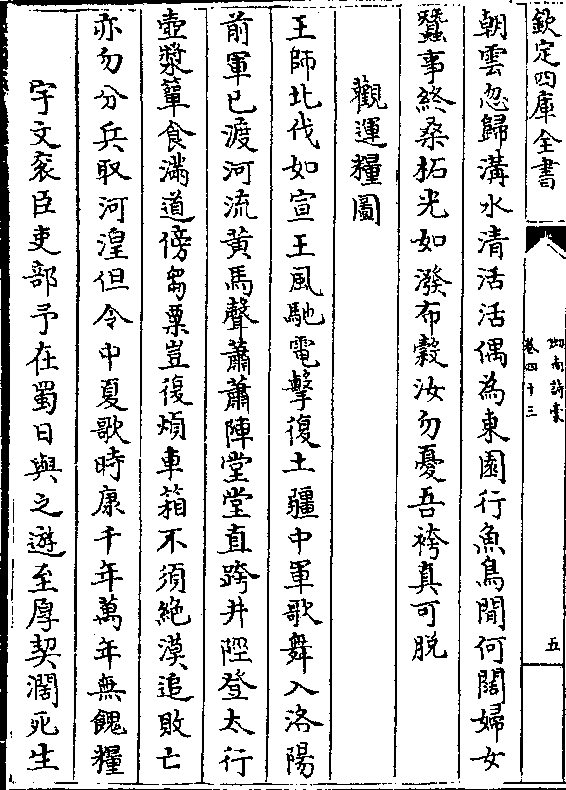 欽定四庫全書
劍南詩藁
卷四十三
五
朝雲忽歸溝水清活活偶為東園行魚鳥閒何闊婦女
蠶事終桑柘光如潑布穀汝勿憂吾袴真可脱
觀運糧圖
王師北伐如宣王風馳電擊復土疆中軍歌舞入洛陽
前軍已渡河流黄馬聲蕭蕭陣堂堂直跨井陘登太行
壺漿簞食滿道傍芻粟豈復煩車箱不須絶漠追敗亡
亦勿分兵取河湟但令中夏歌時康千年萬年無餽糧
宇文衮臣吏部予在蜀日與之遊至厚契濶死生